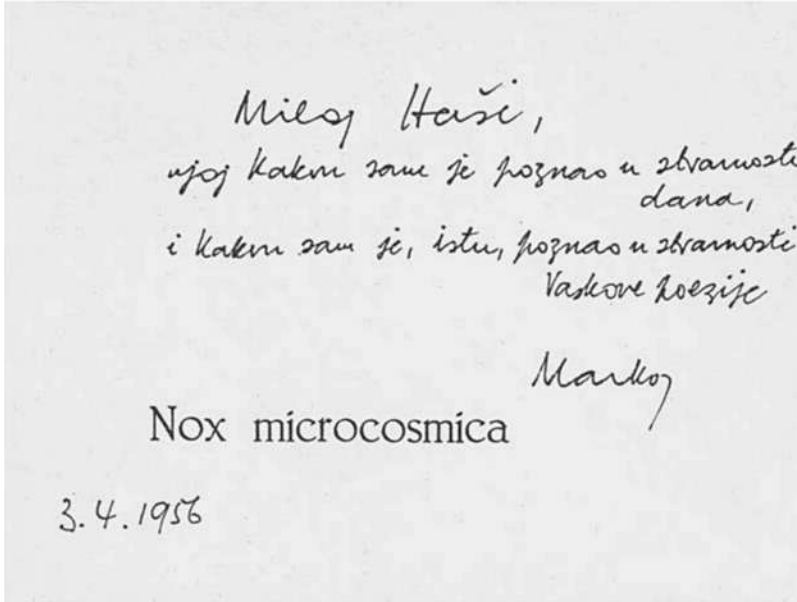 Miloj Haši,
njoj kakvu sam je poznao u stvarnosti
dana,
i kakvu sam je, istu, poznao u stvarnosti
Vaskove poezije
Marko
Nox microcosmica
3.4.1956